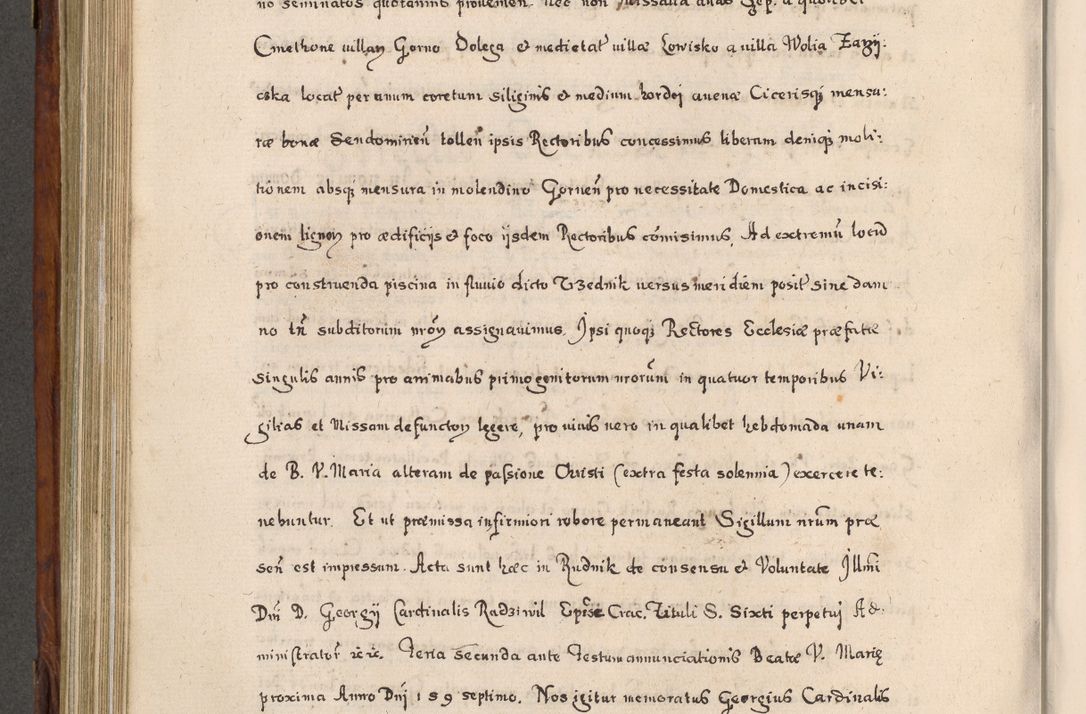 no seminatos quotannis provenien. nec non Missalia duas Sep. a quolibet
Cmethone villan Gorno Dolega et medietat villæ Lowisko a villa Wolia Zarzy:
cska locat per anum coretum siliginis et medium hordei avenæ Cicerisq mensu:
ræ bonæ Sendomirien tollen ipsis Rectoribus concessimus liberam deniq moli:
tionem absq mensura in molendino Gornen pro necessitate Domestica ac incisi:
onem lignon pro ædificijs et foco ijsdem Rectoribus comisimus, Ad extremu locu
pro construenda piscina in fluvio dicto Trzednik versus meridiem posit sine dam
no tn subditorum nron assignavimus. Ipsi quoq Rectores Ecclesiæ præfatæ
singulis annis pro animabus primogenitorum nrorum in quatuor temporibus Vi:
gilias et Missam defuncton legere, pro vivis vero in qualibet hebdomada unam
de B. V. Maria alteram de passione Christi (extra festa solennia) exercere te:
nebuntur. Et ut præmissa infirmiori robore permaneant Sigillum nrum præ
sen est impressum. Acta sunt hæc in Rudnik de consensu et Voluntate Illmi
Dni D. Georgij Cardinalis Radziwil Epise Crac. Tituli S. Sixti perpetui Ad:
ministrator etc etc. Feria Secunda ante Festum annunciationis Beatæ V. Marię
proxima Anno Dni 159 septimo. Nos igitur memoratus Georgius Cardinalis